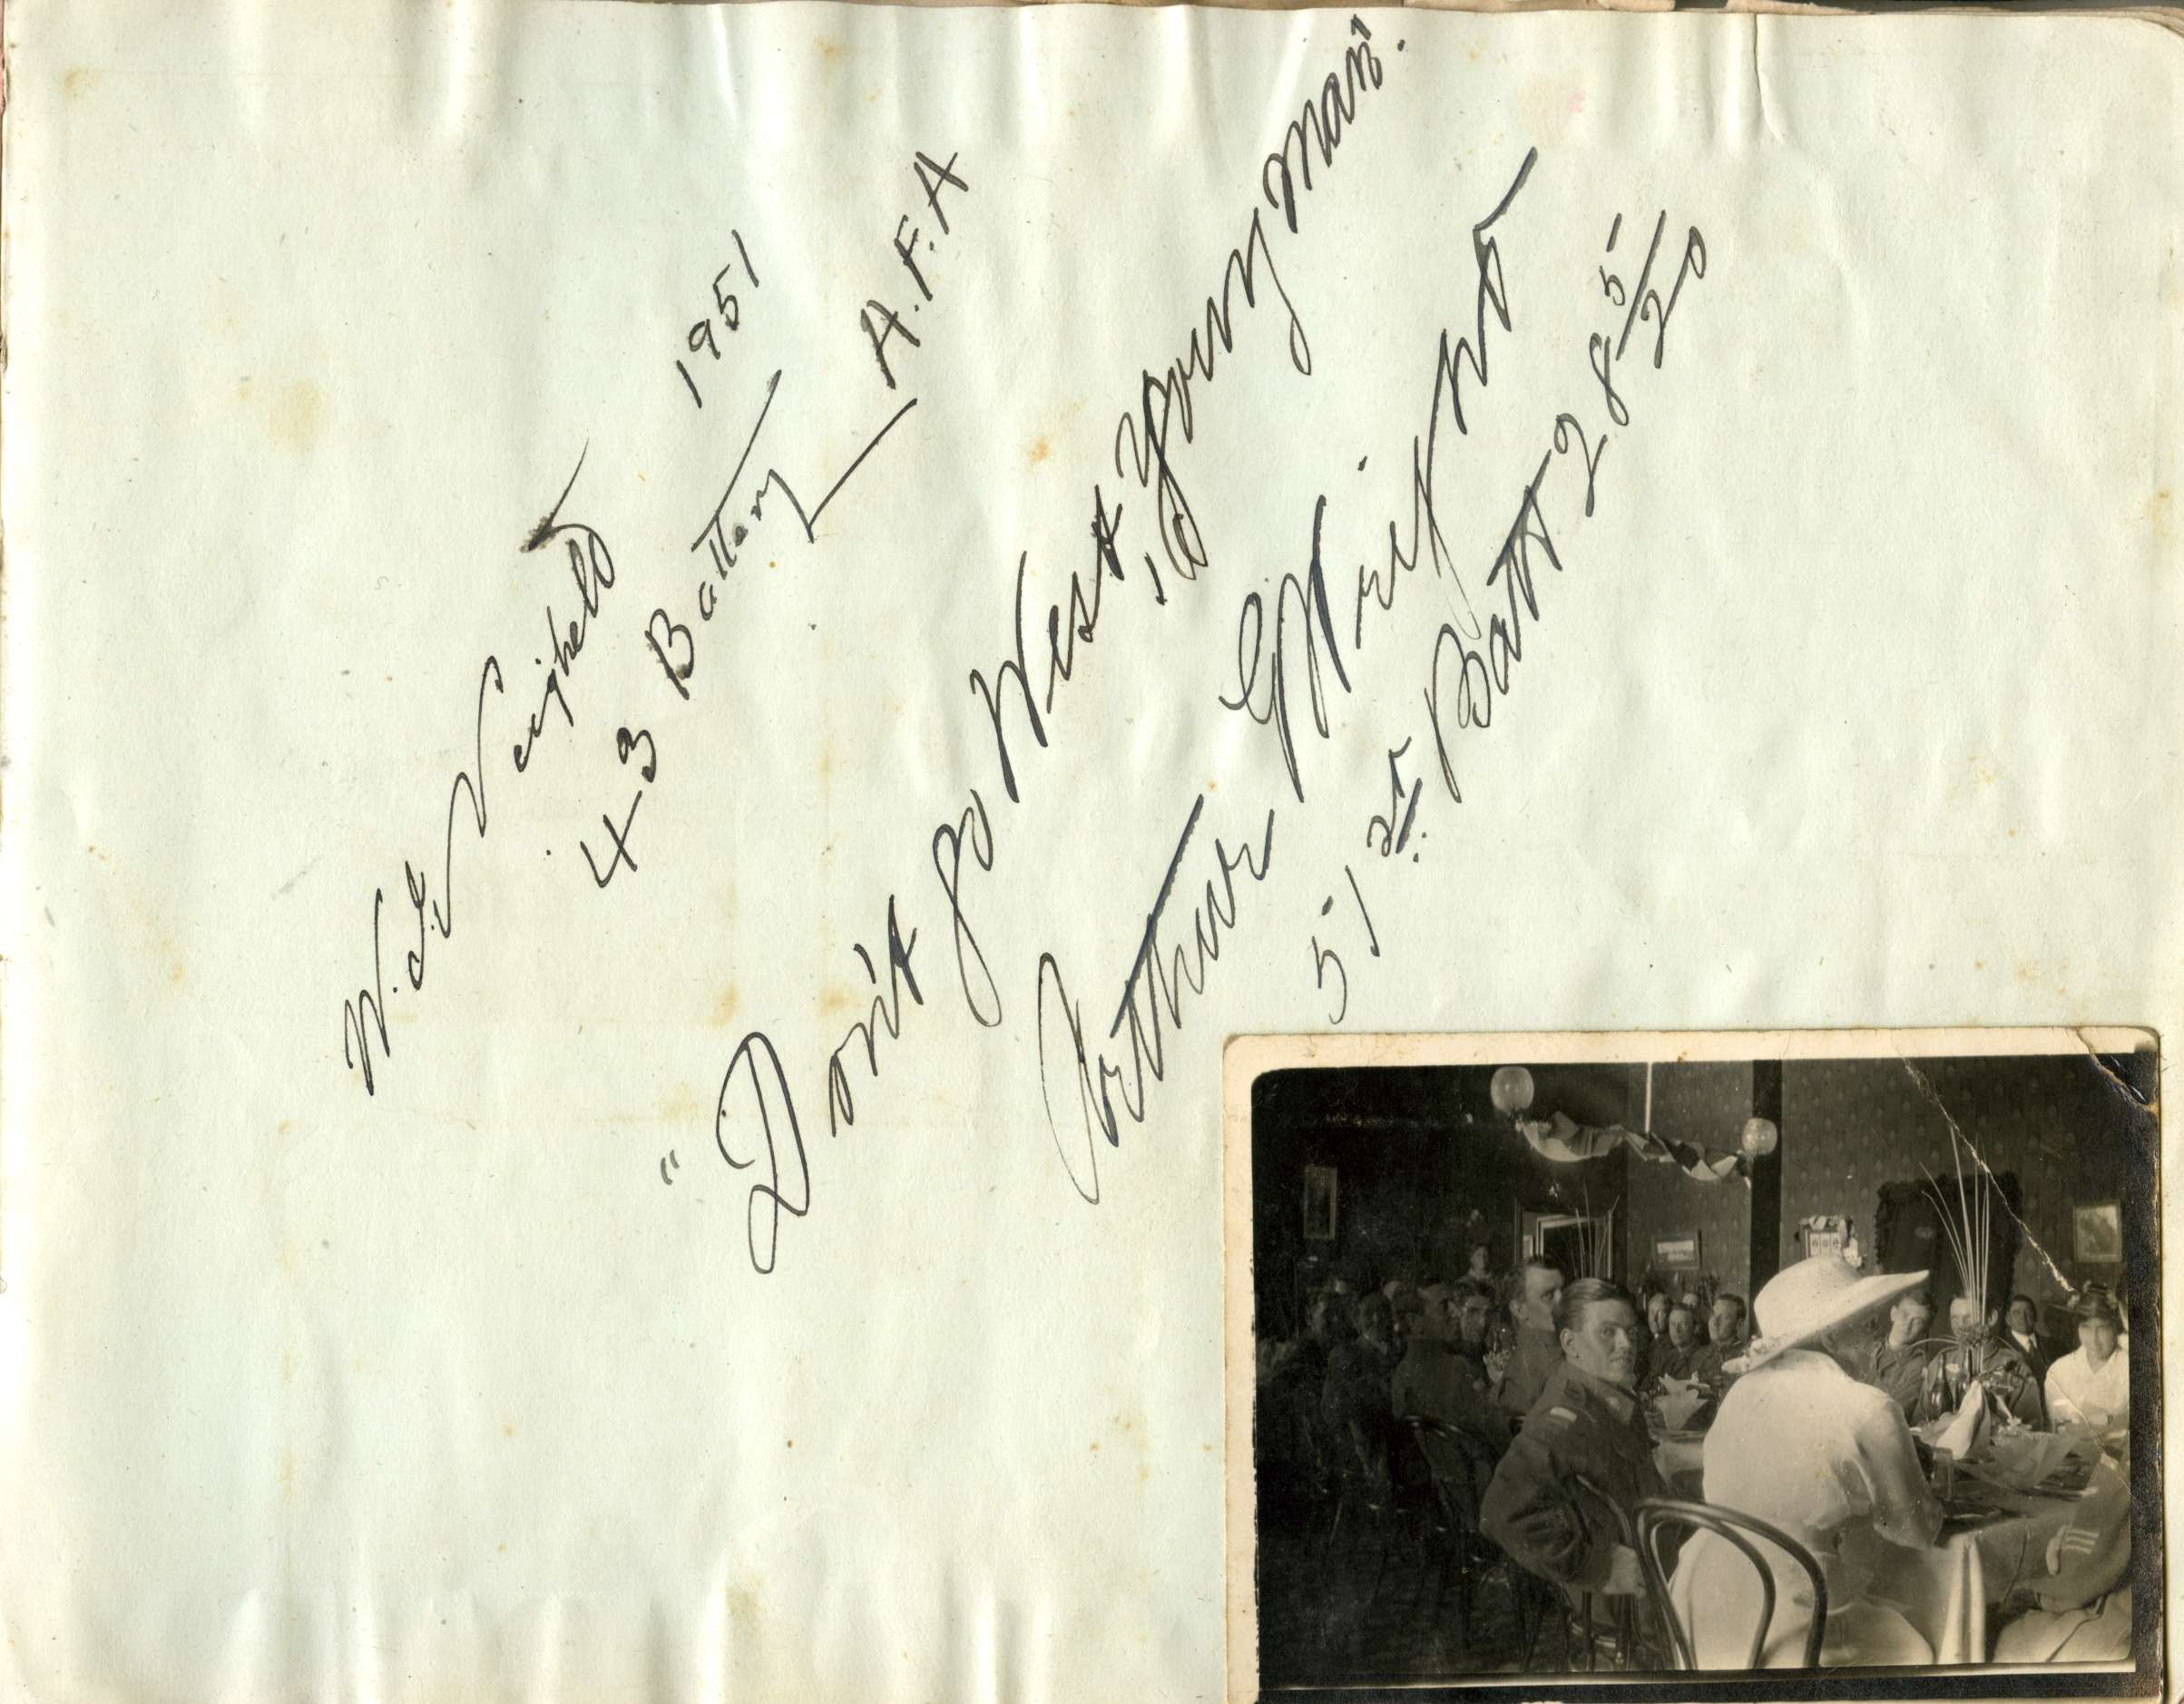 W. J. Neighold 1951
43 Battery A.F.A
"Don't go West, Young Man".
Arthur G Wright
51st Batt 28 5/20